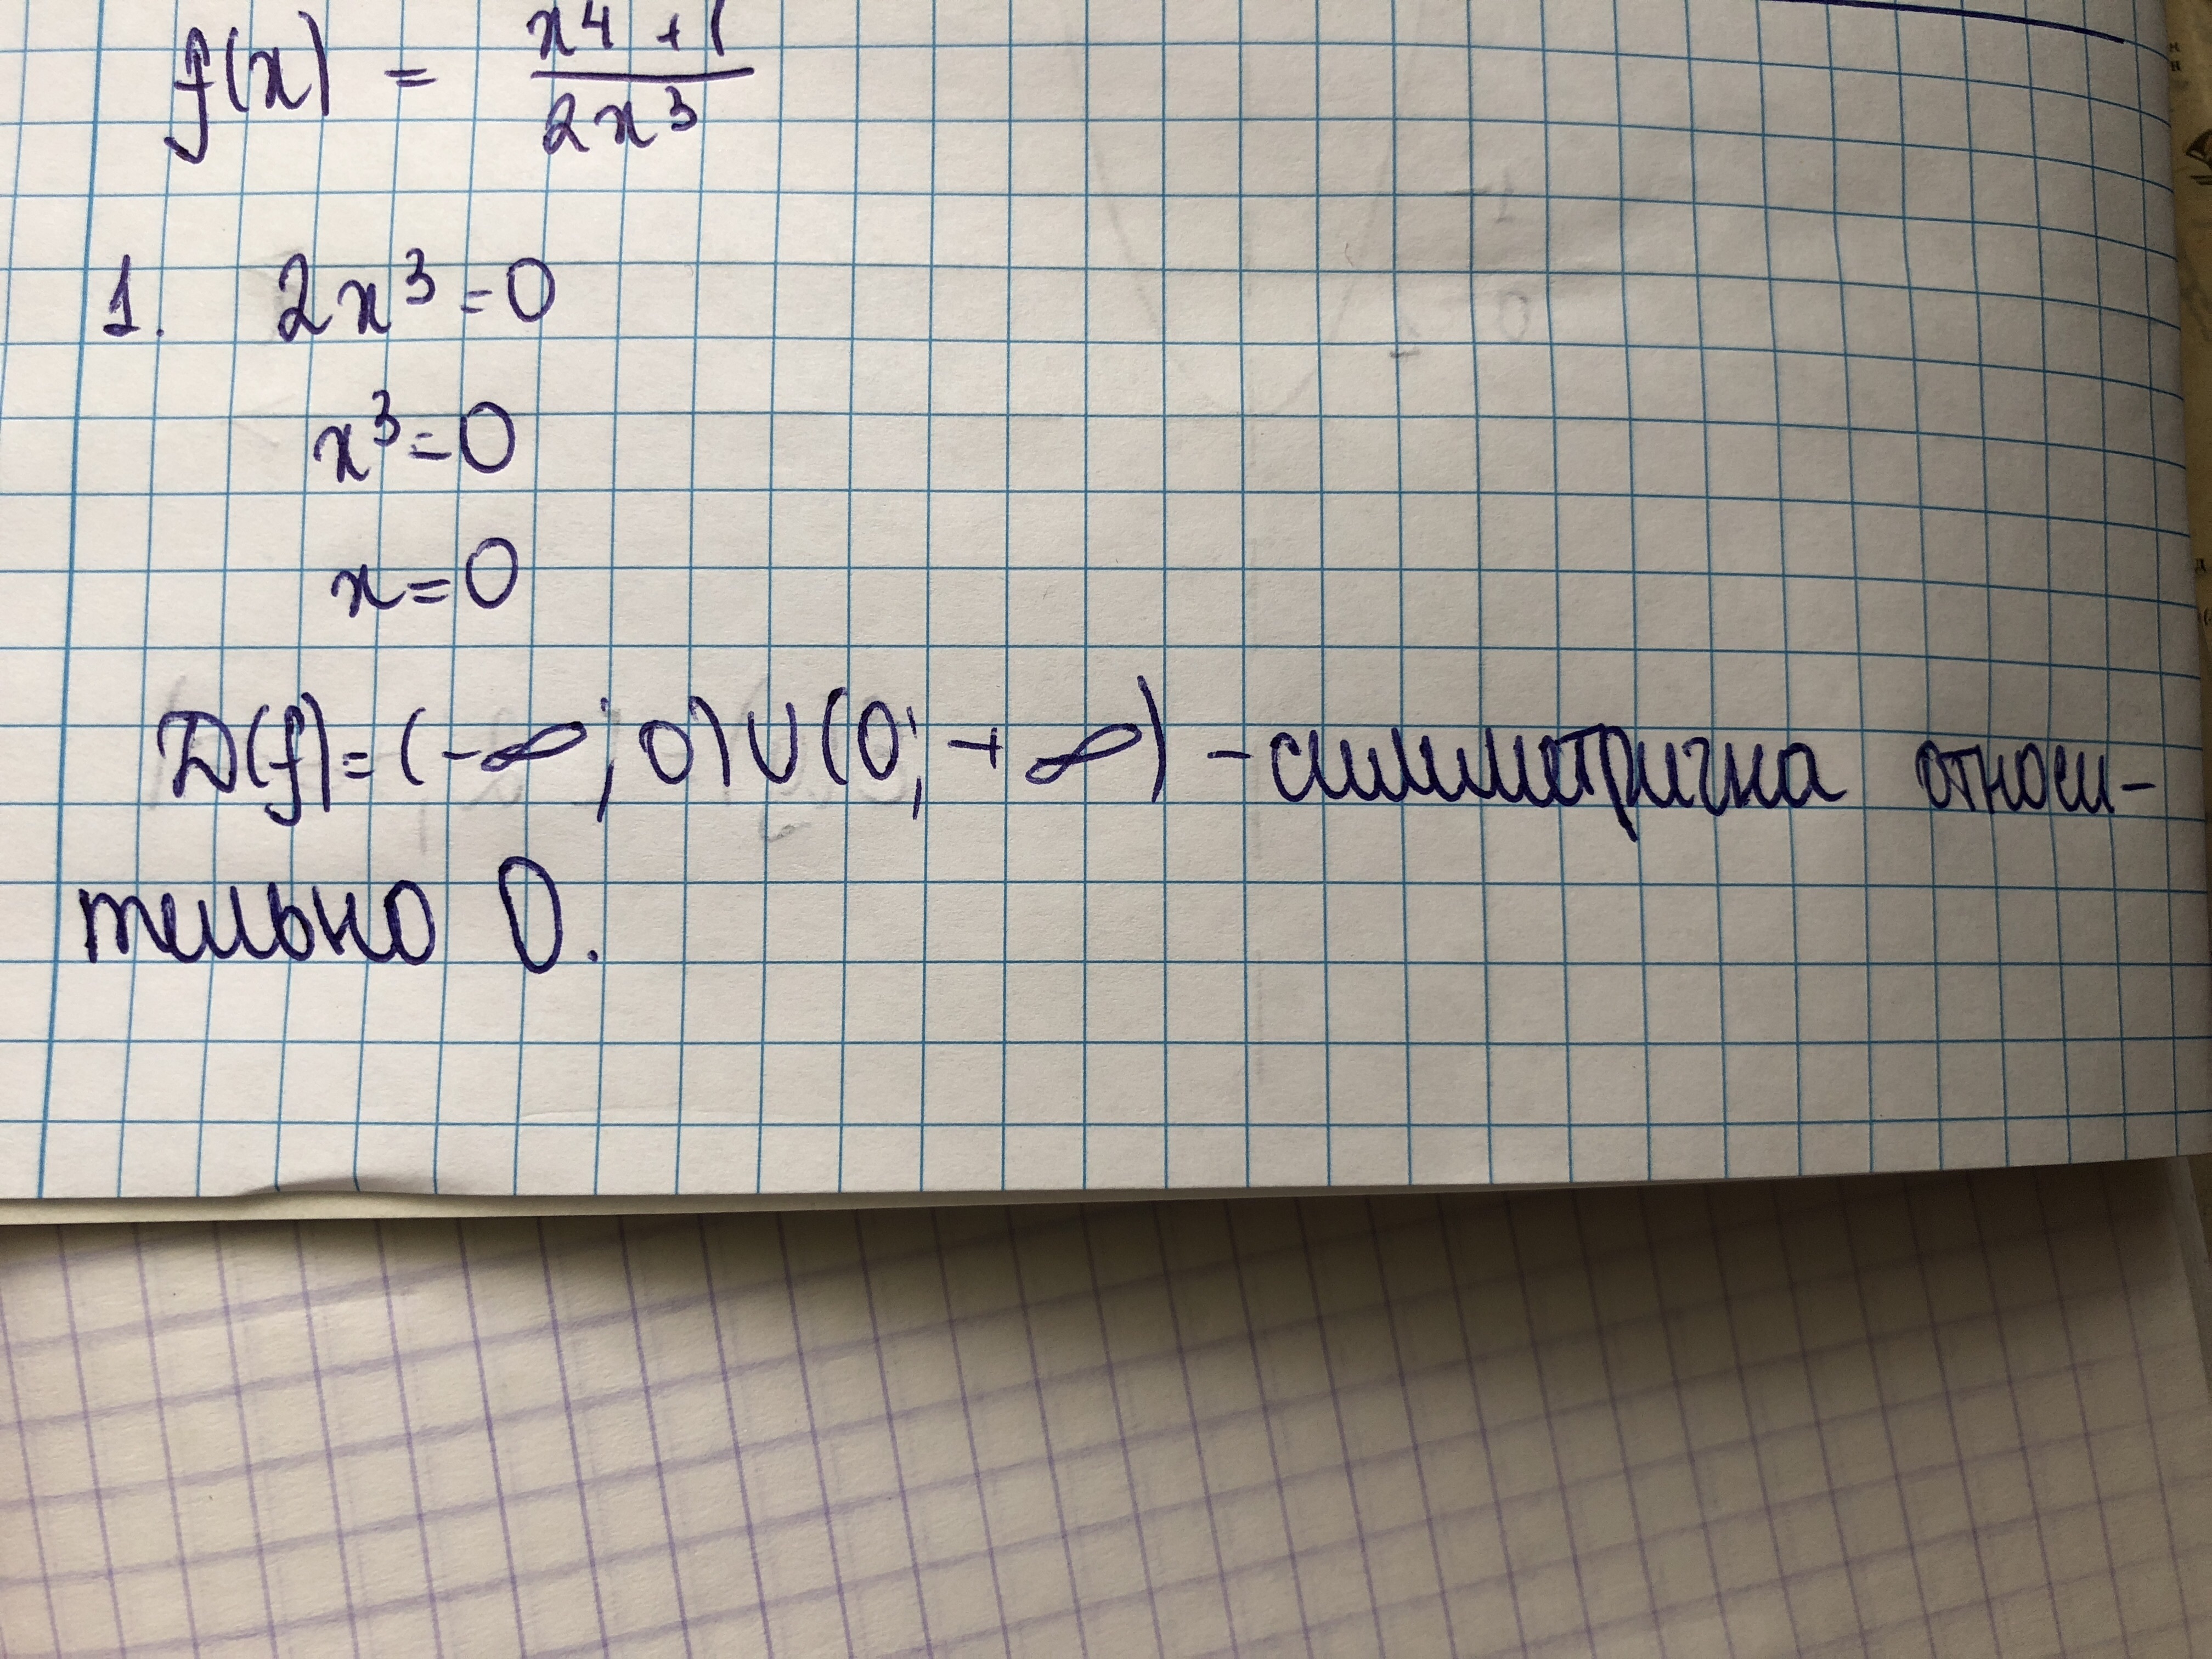 f(x) = (x⁴ + 1)/(2x³)
1. 2x³ = 0
x³ = 0
x = 0
D(f) = (-∞; 0) ∪ (0; +∞) - симметрична относи-
тельно 0.